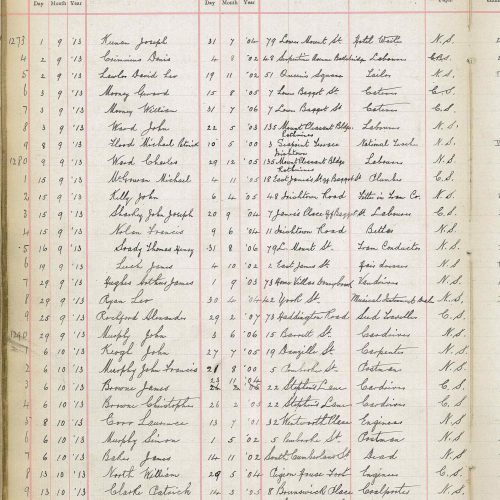 Day Month Year Day Month Year
1273 1 9 '13 Keenan Joseph 31 7 '04 79 Lower Mount St Hotel Waiter N.S.
4 2 9 '13 Denis 4 '02 48 Labourer
5 2 9 '13 Lawlor David Leo 19 11 '02 51 Queen's Square Tailor N.S.
6 3 9 '13 Mooney Gerard 15 8 '05 7 Lower Baggot St C.S.
7 3 9 '13 Mooney William 31 7 '06 7 Lower Baggot St C.S.
8 3 9 '13 Ward John 22 5 '03 135 Mount Pleasant Bldgs Rathmines Labourer N.S.
9 8 9 '13 Flood Michael Patrick 10 5 '00 3 Serpent Terrace Irishtown National Teach N.S.
1280 9 9 '13 Ward Charles 29 12 '05 135 Mount Pleasant Bldgs Rathmines Labourer N.S.
1 15 9 '13 McGowan Michael 4 11 '05 18 East James's St off Baggot St Plumber C.S.
2 15 9 '13 Kelly John 6 4 '05 48 Irishtown Road Fitter in Tram Co. N.S.
3 15 9 '13 Sharkey John Joseph 20 9 '04 7 James's Place off Baggot St Labourer C.S.
4 15 9 '13 Nolan Francis 9 6 '04 11 Irishtown Road Butler N.S.
5 16 9 '13 Thomas Henry 31 8 '06 79 L. Mount St. Tram Conductor N.S.
6 19 9 '13 James 4 10 '02 2 East James St Hair dresser N.S.
7 29 9 '13 Hughes Arthur James 1 9 '03 73 Villas Donnybrook Van driver N.S.
8 29 9 '13 Ryan Leo 30 4 '04 42 York St. Musical Instrument N.S.
9 25 9 '13 Rochford Alexander 29 2 '07 73 Haddington Road Traveller C.S.
1290 29 9 '13 Murphy John 3 6 '06 15 Barrett St Car driver N.S.
6 10 '13 Keogh John 27 7 '05 19 Carpenter N.S.
2 6 10 '13 Murphy John Francis 21 8 '00 5 Pembroke St. Postman N.S.
3 6 10 '13 Browne James 23 11 '04 22 Stephens Lane Car driver C.S.
4 6 10 '13 Browne Christopher 26 2 '03 22 Stephens Lane Car driver C.S.
5 8 10 '13 Laurence 13 7 '01 32 Wentworth Place Engineer N.S.
6 6 10 '13 Murphy Simon 1 5 '02 5 Pembroke St. Postman N.S.
7 6 10 '13 James 14 11 '02 South Cumberland St Dead N.S.
8 13 10 '13 North William 26 5 '04 Pigeon House Fort Engineer C.S.
9 13 10 '13 Clarke Patrick 14 3 '05 8 Brunswick Place Coal porter N.S.